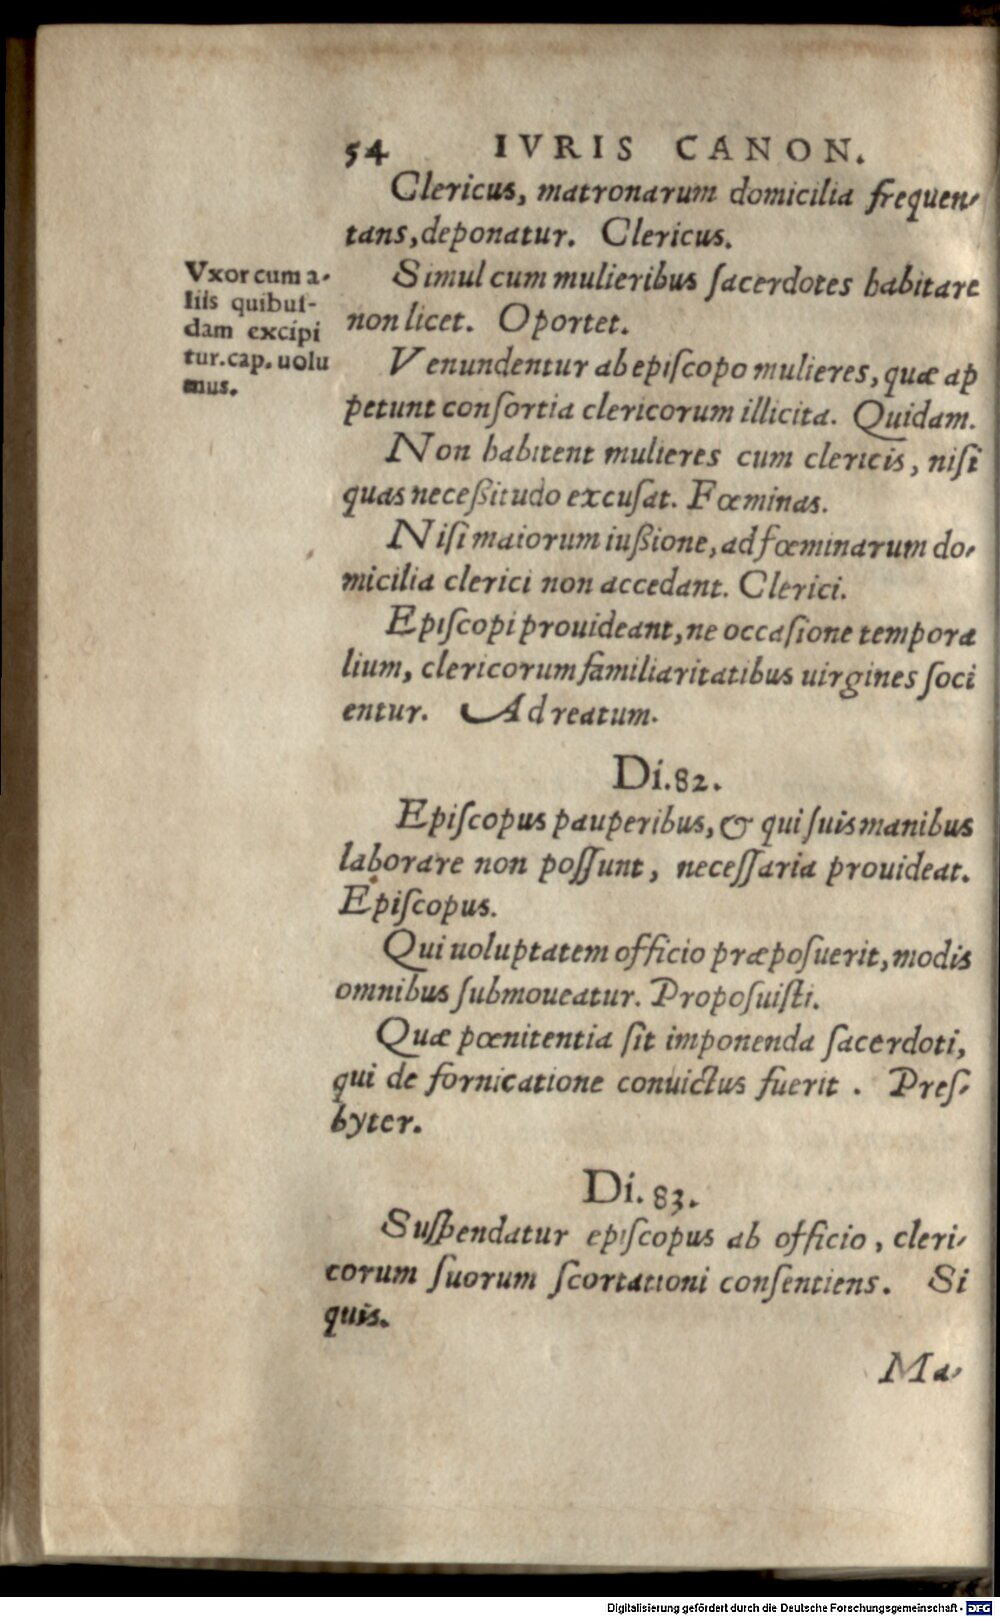 54 IVRIS CANON.
Clericus, matronarum domicilia frequen-
tans, deponatur. Clericus.
Vxor cum a-
liis quibuſ-
dam excipi
tur. cap. uolu
mus.
Simul cum mulieribus ſacerdotes habitare
non licet. Oportet.
Venundentur ab epiſcopo mulieres, quæ ap
petunt conſortia clericorum illicita. Quidam.
Non habitent mulieres cum clericis, niſi
quas neceßitudo excuſat. Fœminas.
Niſi maiorum iußione, ad fœminarum do-
micilia clerici non accedant. Clerici.
Epiſcopi prouideant, ne occaſione tempora
lium, clericorum familiaritatibus uirgines ſoci
entur. Ad reatum.
Di. 82.
Epiſcopus pauperibus, & qui ſuis manibus
laborare non poſſunt, neceſſaria prouideat.
Epiſcopus.
Qui uoluptatem officio præpoſuerit, modis
omnibus ſubmoueatur. Propoſuiſti.
Quæ pœnitentia ſit imponenda ſacerdoti,
qui de fornicatione conuictus fuerit. Preſ-
byter.
Di. 83.
Suſpendatur epiſcopus ab officio, cleri-
corum ſuorum ſcortationi conſentiens. Si
quis.
Ma-
Digitalisierung gefördert durch die Deutsche Forschungsgemeinschaft - DFG